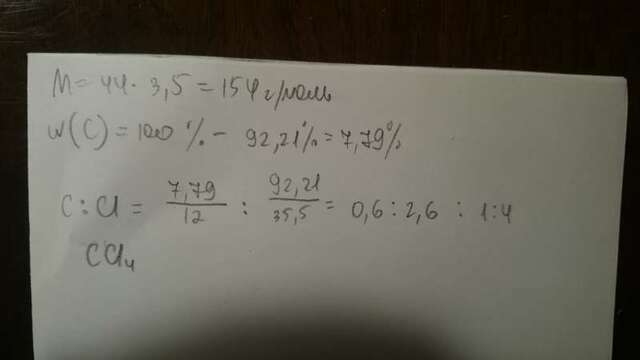 M = 44 · 3,5 = 154 г/моль
w(C) = 100 % - 92,21% = 7,79%
C : Cl = 7,79/12 : 92,21/35,5 = 0,6 : 2,6 : 1:4
CCl₄